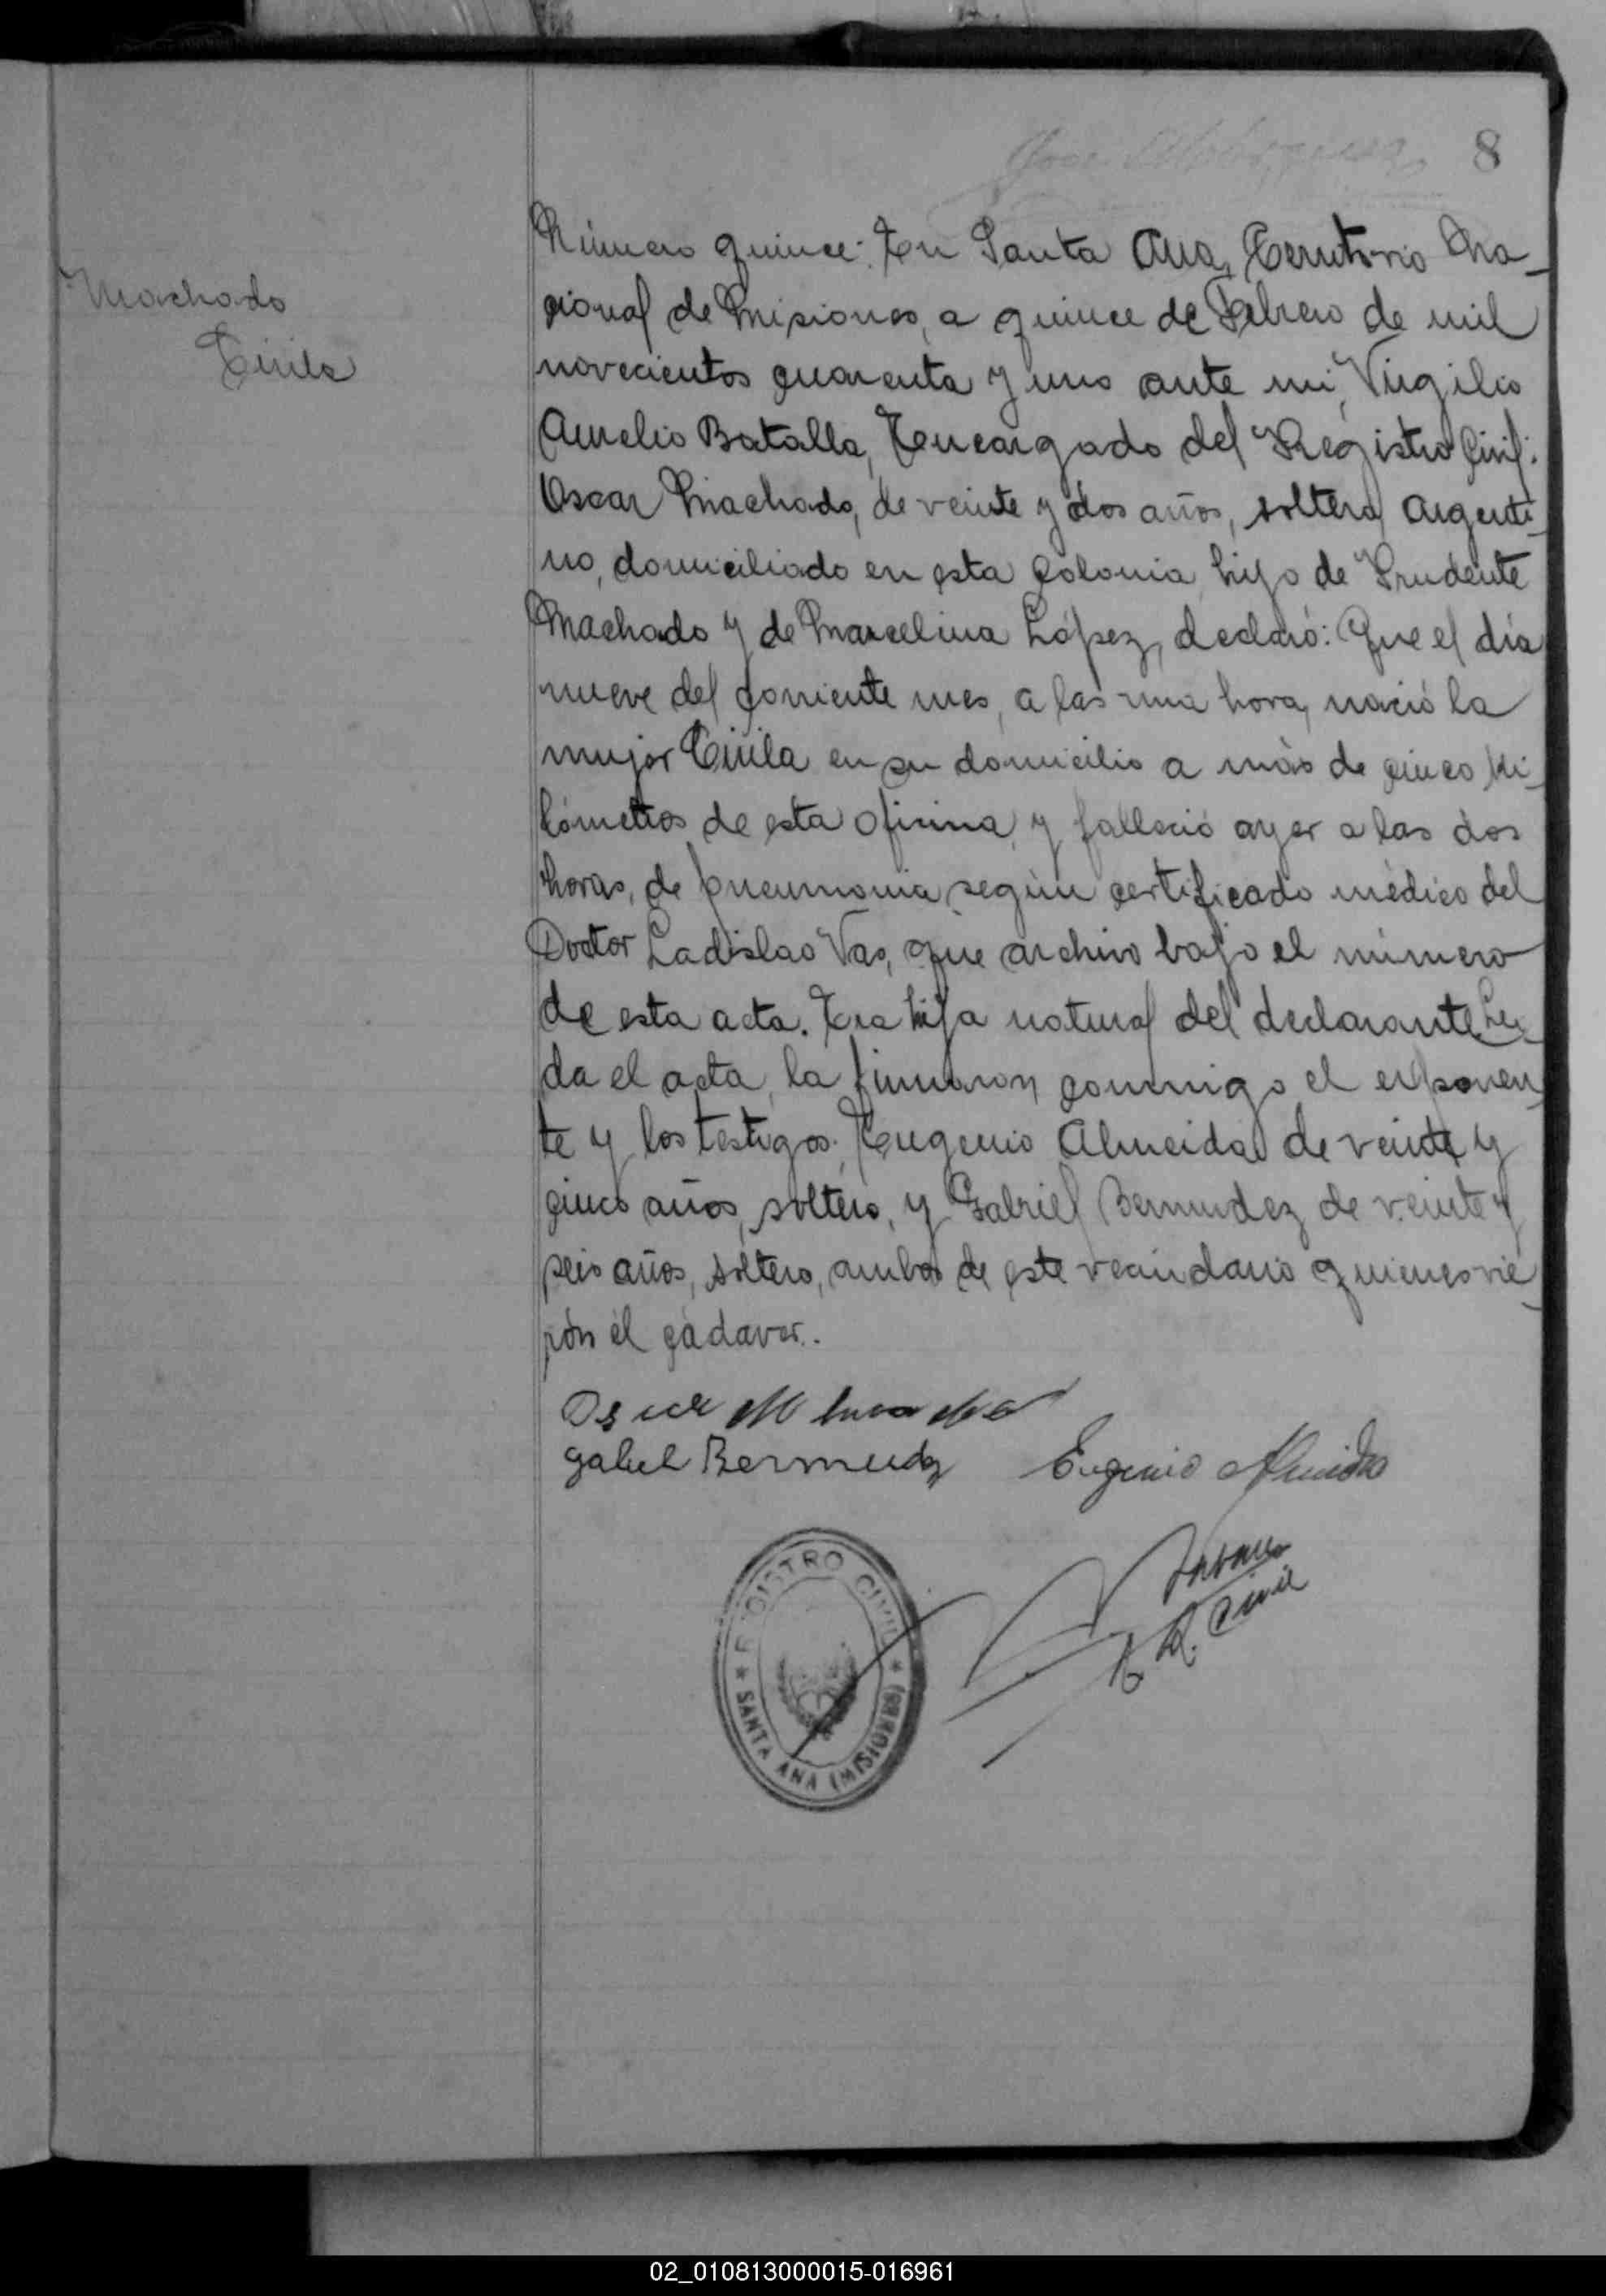 8
Machado
Número quince: En Santa Ana, Territorio Na-
cional de Misiones, a quince de Febrero de mil
novecientos cuarenta y uno ante mi, Virgilio
Aurelio Batalla, Encargado del Registro Civil:
Oscar Machado, de veinte y dos años, soltero, Argenti-
no, domiciliado en esta Colonia, hijo de Prudente
Machado y de Marcelina López, declaró: Que el día
nueve del corriente mes, a las una hora, nació la
mujer en su domicilio a más de cinco ki-
lómetros de esta oficina, y falleció ayer a las dos
horas, de pneumonia según certificado médico del
Doctor Ladislao Vas, que archivo bajo el número
de esta acta. Era hija natural del declarante. Leí-
da el acta, la firmaron conmigo el exponen-
te y los testigos: Eugenio Almeida de veinte y
cinco años, soltero, y Gabriel Bermudez de veinte y
seis años, soltero, ambos de este vecindario quienes vie-
rón el cádaver.
Oscar Machado
gabiel Bermudez Eugenio Almeida
E. R. Civil
REGISTRO CIVIL
★ SANTA ANA (MISIONES) ★
02_010813000015-016961